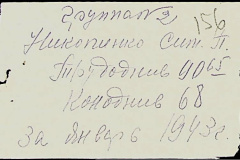 группа № 2
156
Никопенко Сит. П.
Трудоднів 40 65
Коноднів 68
за январь 1943 г.